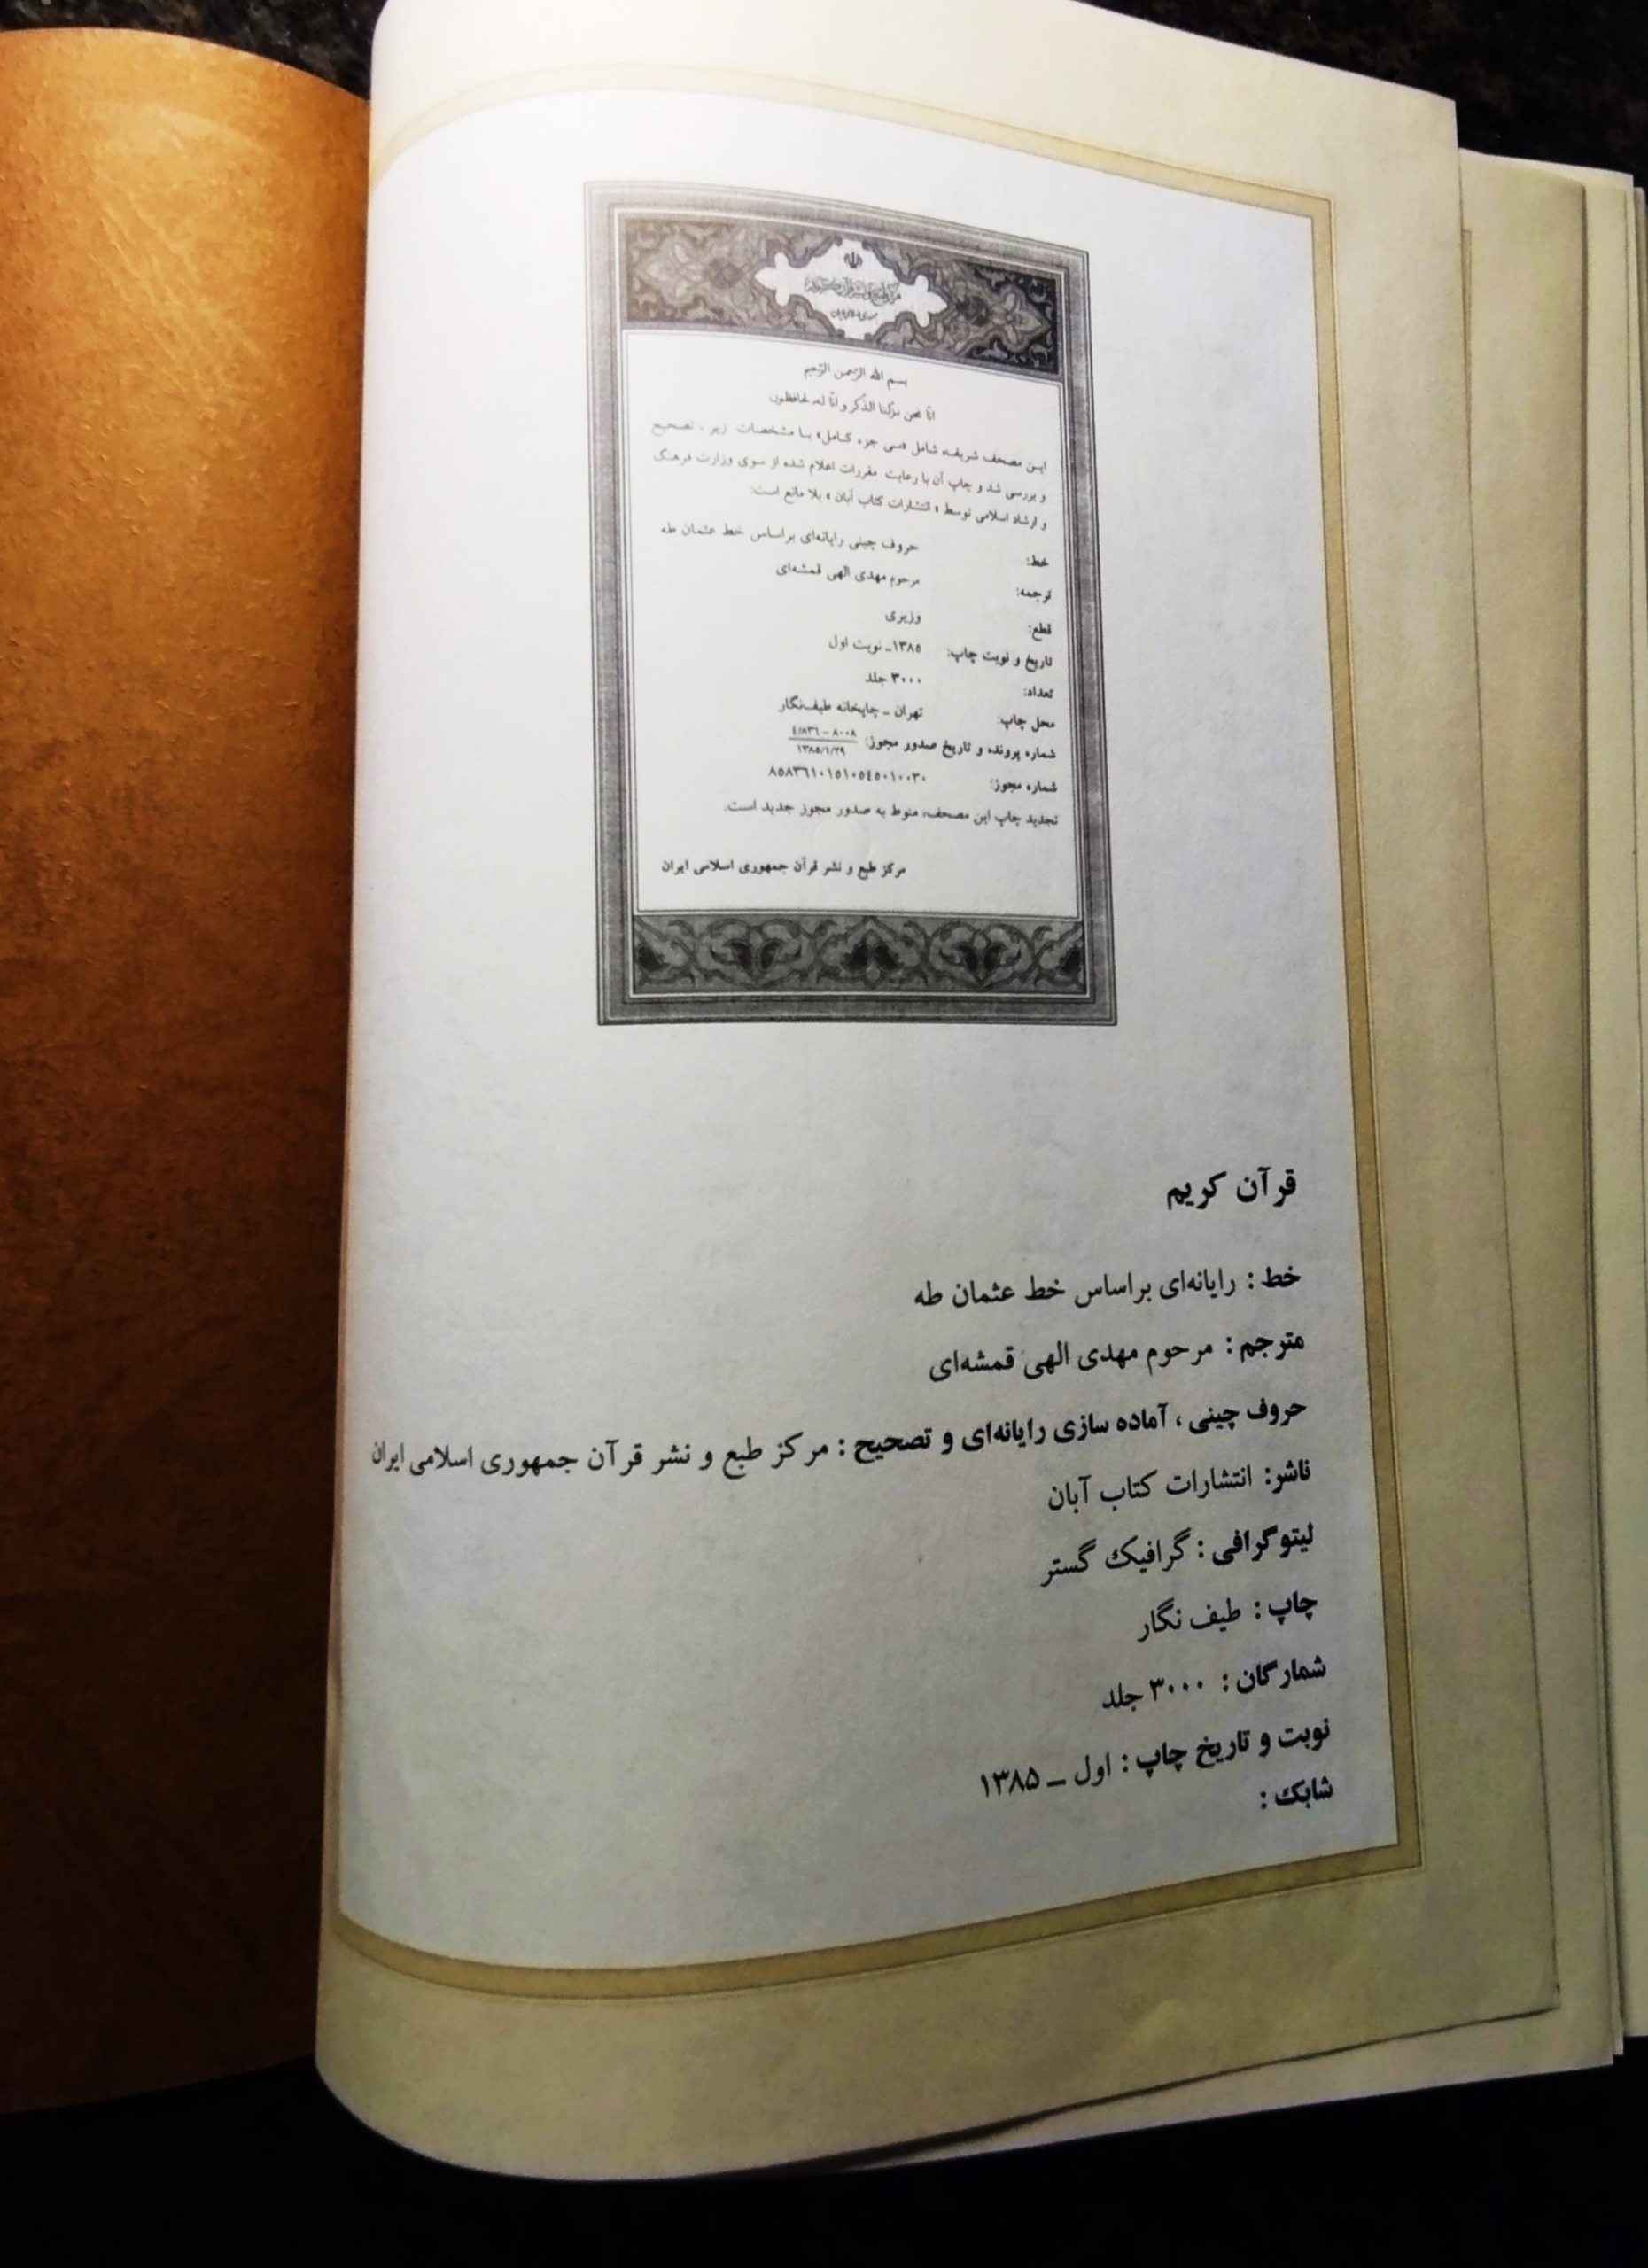 بسم الله الرّحمن الرّحیم
انّا نحن نزّلنا الذّکر و انّا له لحافظون
ایـن مصحف شریف، شامل «سی جزء کـامل» بـا مشخصات زیر، تصحیح
و بررسی شد و چاپ آن با رعایت مقررات اعلام شده از سوی وزارت فرهنگ
و ارشاد اسلامی توسط «انتشارات کتاب آبان» بلا مانع است:
خط: حروف چینی رایانه‌ای براساس خط عثمان طه
ترجمه: مرحوم مهدی الهی قمشه‌ای
قطع: وزیری
تاریخ و نوبت چاپ: ۱۳۸۵ـ نوبت اول
تعداد: ۳۰۰۰ جلد
محل چاپ: تهران ـ چاپخانه طیف‌نگار
شماره پرونده و تاریخ صدور مجوز:
شماره مجوز:
تجدید چاپ این مصحف، منوط به صدور مجوز جدید است.
مرکز طبع و نشر قرآن جمهوری اسلامی ایران
قرآن کریم
خط : رایانه‌ای براساس خط عثمان طه
مترجم : مرحوم مهدی الهی قمشه‌ای
حروف چینی ، آماده سازی رایانه‌ای و تصحیح : مرکز طبع و نشر قرآن جمهوری اسلامی ایران
ناشر: انتشارات کتاب آبان
لیتوگرافی : گرافیک گستر
چاپ : طیف نگار
شمارگان : ۳۰۰۰ جلد
نوبت و تاریخ چاپ : اول ـ ۱۳۸۵
شابک :